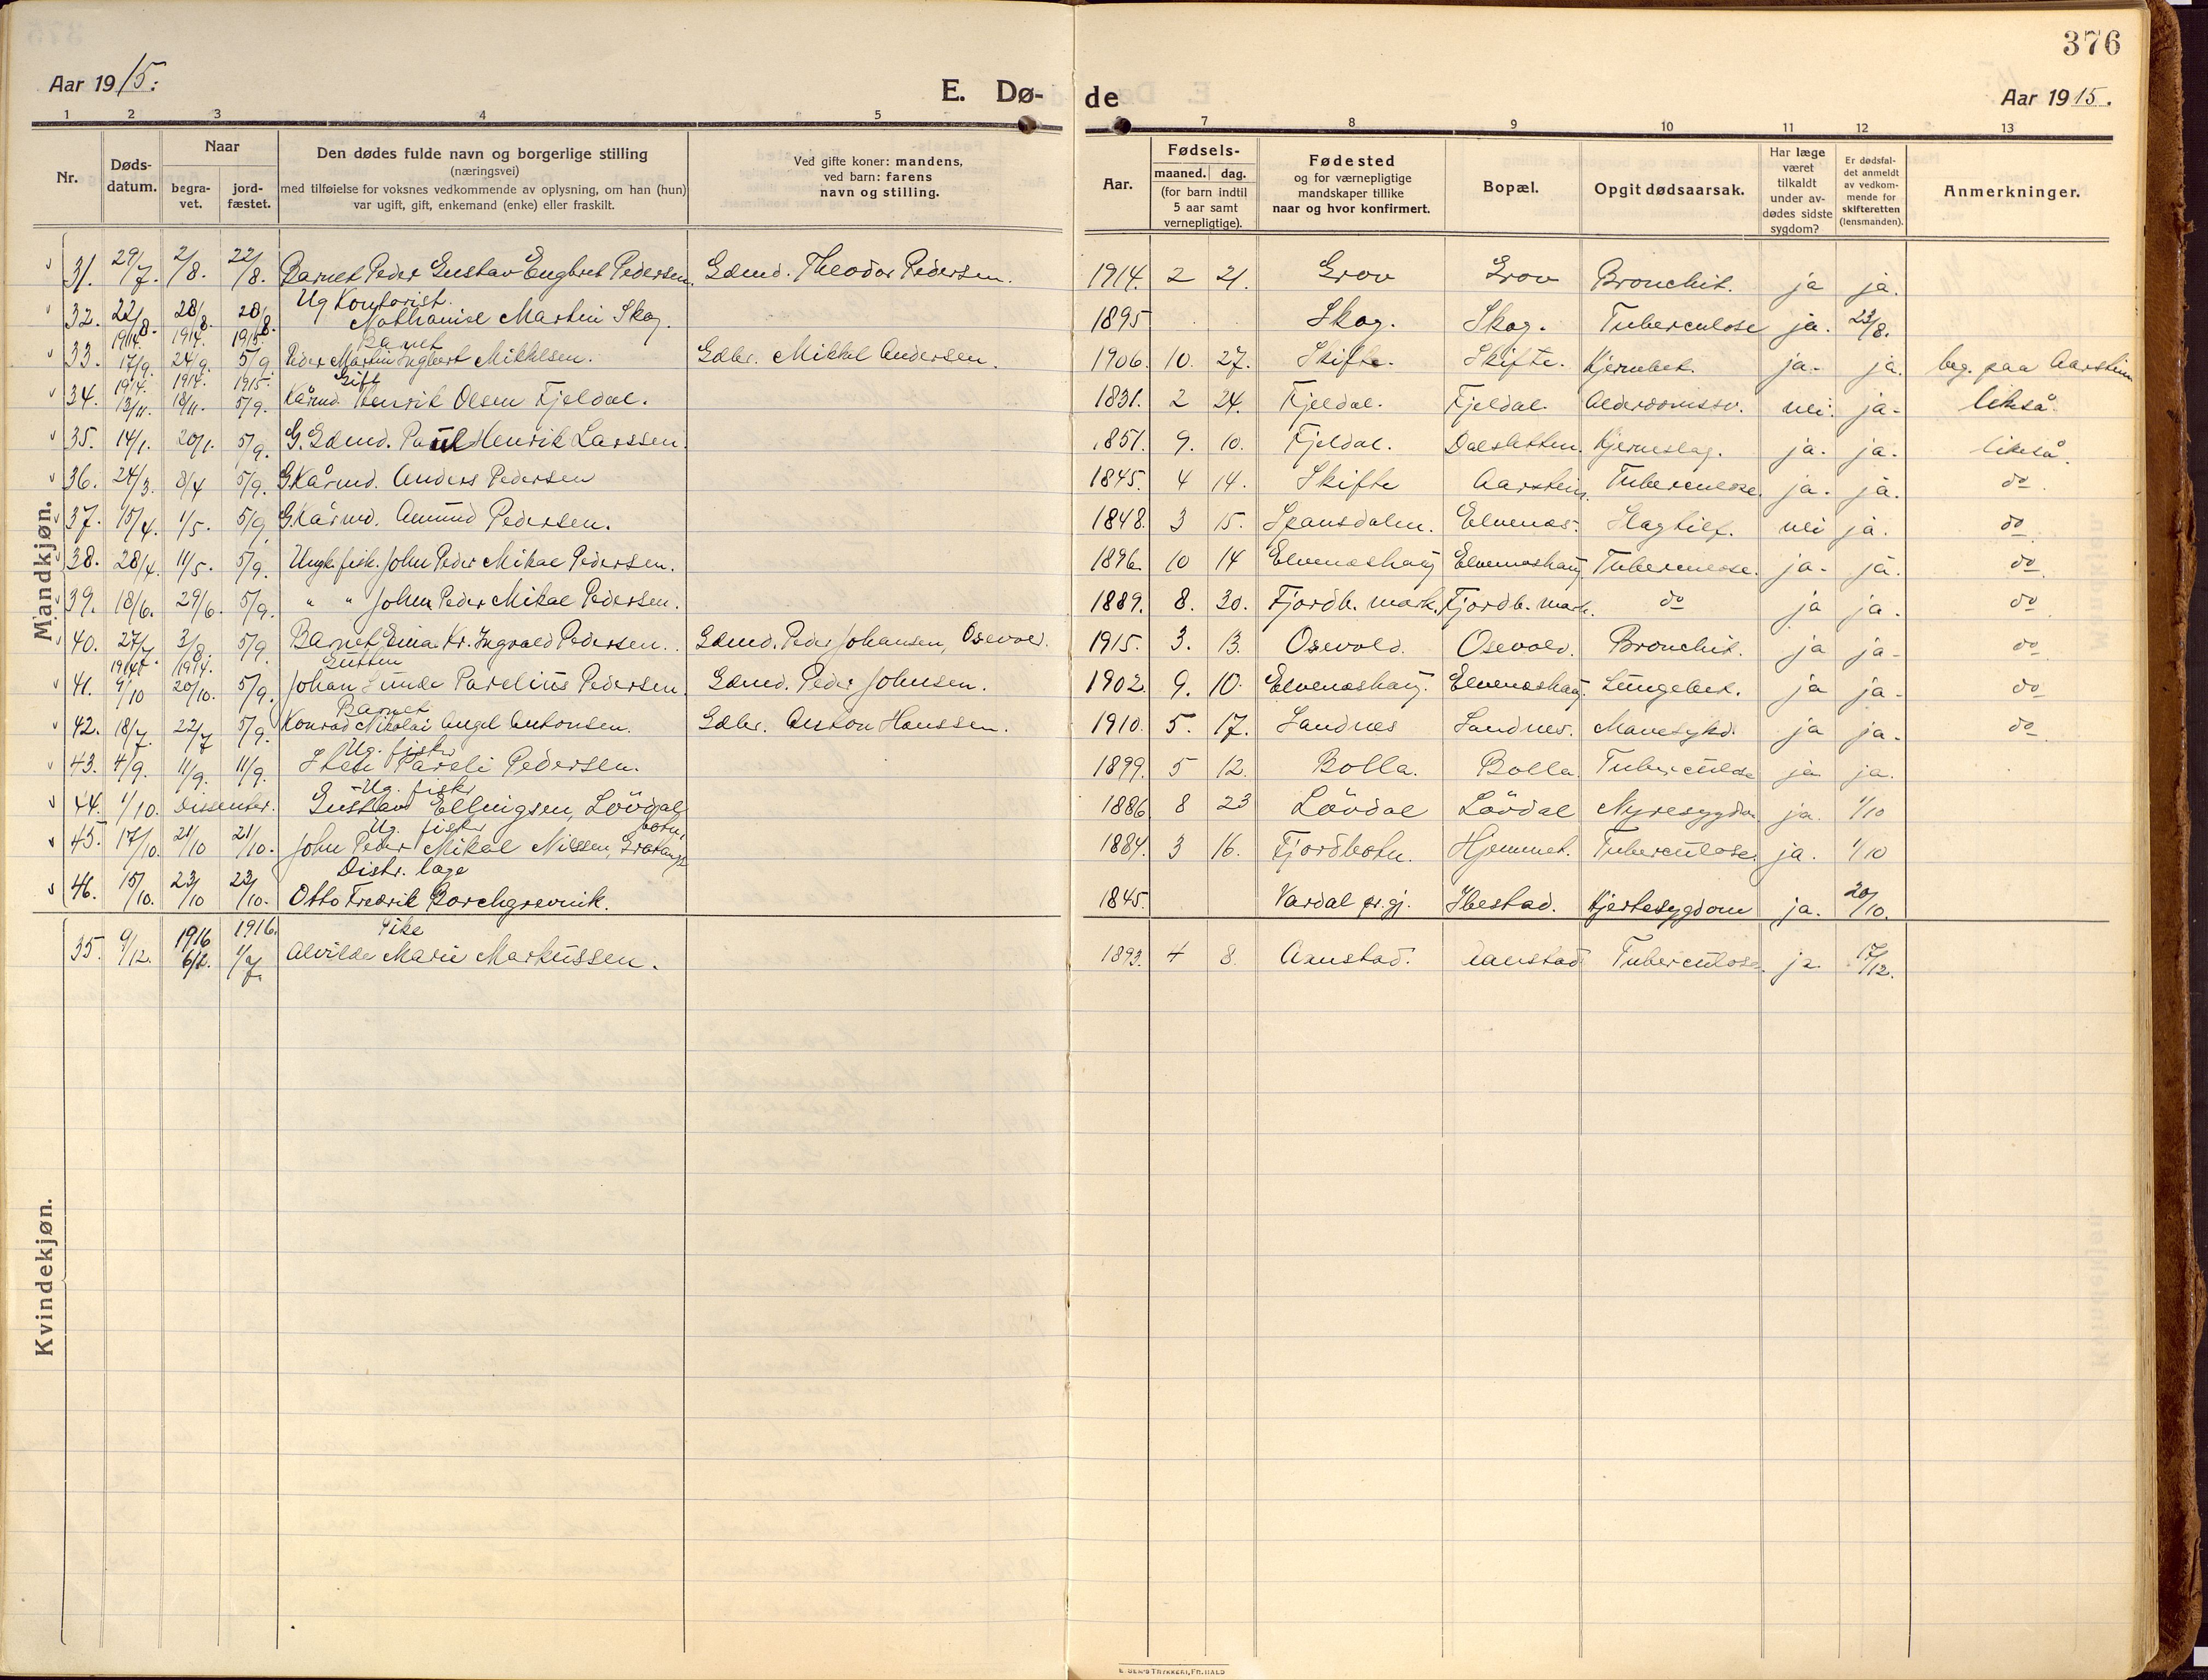 376
Aar 1915.
E. Dø-
de
Aar 1915.
1 2 3 4 5 7 8 9 10 11 12 13
Nr.
Døds-
datum.
Naar
begra-
vet.
jord-
fæstet.
Den dødes fulde navn og borgerlige stilling
(næringsvei)
med tilføielse for voksnes vedkommende av oplysning, om han (hun)
var ugift, gift, enkemand (enke) eller fraskilt.
Ved gifte koner: mandens,
ved barn: farens
navn og stilling.
Fødsels-
Aar.
maaned. dag.
(for barn indtil
5 aar samt
vernepligtige).
Fødested
og for værnepligtige
mandskaper tillike
naar og hvor konfirmert.
Bopæl.
Opgit dødsaarsak.
Har læge
været
tilkaldt
under av-
dødes sidste
sygdom?
Er dødsfal-
det anmeldt
av vedkom-
mende for
skifteretten
(lensmanden).
Anmerkninger.
Mandkjøn.
31. 29/7. 2/8. 22/8. Barnet Peder Gustav Engbret Pedersen. Gdmd. Theodor Pedersen. 1914. 2 21. Grov Grov Bronchit. ja ja.
Ug Kontorist.
32. 22/8. 28/8. 28/8. Nathanise Martin Skog. 1895 Skog. Skog. Tuberculose ja. 23/8.
1914. 1914. 1915. Barnet
33. 17/9. 24/9. 5/9. Peder Martin Ingbert Mikkelsen. Gdbr. Mikkel Andersen. 1906. 10. 27. Skifte. Skifte. Hjernebet. ja. ja. beg. paa Aarstein
1914. 1914. 1915. Gift
34. 13/11. 18/11. 5/9. Kårmd. Henrik Olsen Fjeldal. 1831. 2 24. Fjeldal. Fjeldal. Alderdomssv. nei. ja. likså.
35. 14/1. 20/1. 5/9. G. Gdmd. Paul Henrik Larssen. 1851. 9. 10. Fjeldal. Dalsletten. Hjerneslag. ja. ja. likså.
36. 24/3. 8/4 5/9. G. Kårmd. Anders Pedersen 1845. 4 14. Skifte Aarstein. Tuberculose. ja. ja. do.
37. 15/4. 1/5. 5/9. G. Kårmd. Amund Pedersen. 1848. 3 15. Spansdalen. Elvenæs. Slagtilf. nei ja. do.
38. 28/4. 11/5. 5/9. Ungk. fisk. John Peder Mikal Pedersen. 1896. 10 14 Elvenæshaug Elvenæshaug Tuberculose. ja. ja. do.
39. 18/6. 29/6. 5/9. " " Johan Peder Mikal Pedersen. 1889. 8. 30. Fjordb. mark. Fjordb. mark. do ja ja. do.
40. 27/7. 3/8. 5/9. Barnet Einar Kr. Ingvald Pedersen. Gdmd. Peder Johansen, Osevold. 1915. 3. 13. Osevold. Osevold. Bronchit. ja ja. do.
1914. 1914. Gutten
41. 9/10 20/10. 5/9. Johan Sunde Parelius Pedersen. Gdmd. Peder Johnsen. 1902. 9. 10. Elvenæshaug. Elvenæshaug. Lungebet. ja ja. do.
Barnet
42. 18/7. 22/7 5/9. Konrad Nikolai Angel Antonsen. Gdbr. Anton Hanssen. 1910. 5. 17. Sandnes Sandnes. Mavesykd. ja ja. do.
Ug. fisker
43. 4/9. 11/9. 11/9. Pareli Pedersen. 1899. 5 12. Bolla. Bolla. Tuberculose ja ja.
Ug. fisker
44. 1/10. Dissenter. Gustav Ellingsen, Lövdal 1886 8 23 Lövdal Lövdal Nyresygdom ja. 1/10
Ug. fisker botn.
45. 17/10. 21/10 21/10. John Peder Mikal Nilssen, Gratangs 1884. 3 16. Fjordbotn. Hjemmet. Tuberculose. ja. 1/10
Distr. læge
46. 15/10. 23/10 23/10. Otto Fredrik Borchgrevink. 1845. Vardal pr.gj. Ibestad. Hjertesygdom ja. 20/10.
Kvindekjøn.
1916 1916. Pike
35. 9/12. 6/2. 1/7. Alvilde Marie Markussen. 1893. 4 8. Aanstad. Aanstad Tuberculose. ja. 17/12.